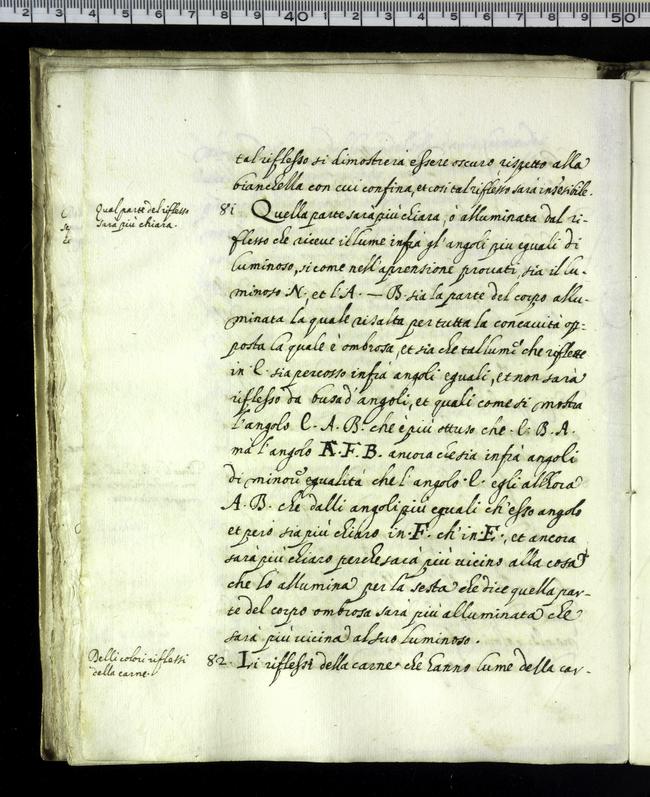 tal riflesso si dimostrerà essere oscuro rispetto alla
bianchella con cui confina, et così tal riflesso sarà insesibile.
Qual parte del riflesso
sarà più chiara.
81 Quella parte sarà più chiara, ò alluminata dal ri-
flesso che riceue il lume infrà gl'angoli piu eguali di
luminoso, si come nell'aprensione prouati, sia il lu-
minoso N. et l'A. — B. sia la parte del corpo allu-
minata la quale risalta per tutta la concauità op-
posta la quale è ombrosa, et sia che tal lume che riflette
in E. sia percosso infrà angoli eguali, et non sarà
riflesso da busad' angoli, et quali come si mostra
l'angolo E. A. B. che è più ottuso che E. B. A.
mà l'angolo A. F. B. ancora che sia infrà angoli
di minor equalità che l'angolo E. egli all'hora
A. B. che dalli angoli più eguali ch'esso angolo
et però sia più chiaro in F. ch'in E., et ancora
sarà più chiaro perche sarà più vicino alla cosa
che lo allumina per la sesta che dice quella par-
te del corpo ombrosa sarà più alluminata che
sarà più vicina al suo luminoso.
Delli colori riflessi
della carne.
82. Li riflessi della carne che hanno lume della car-